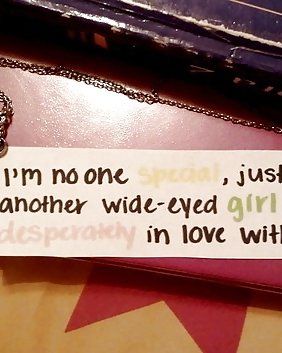 I'm no one special, just
another wide-eyed girl
desperately in love with